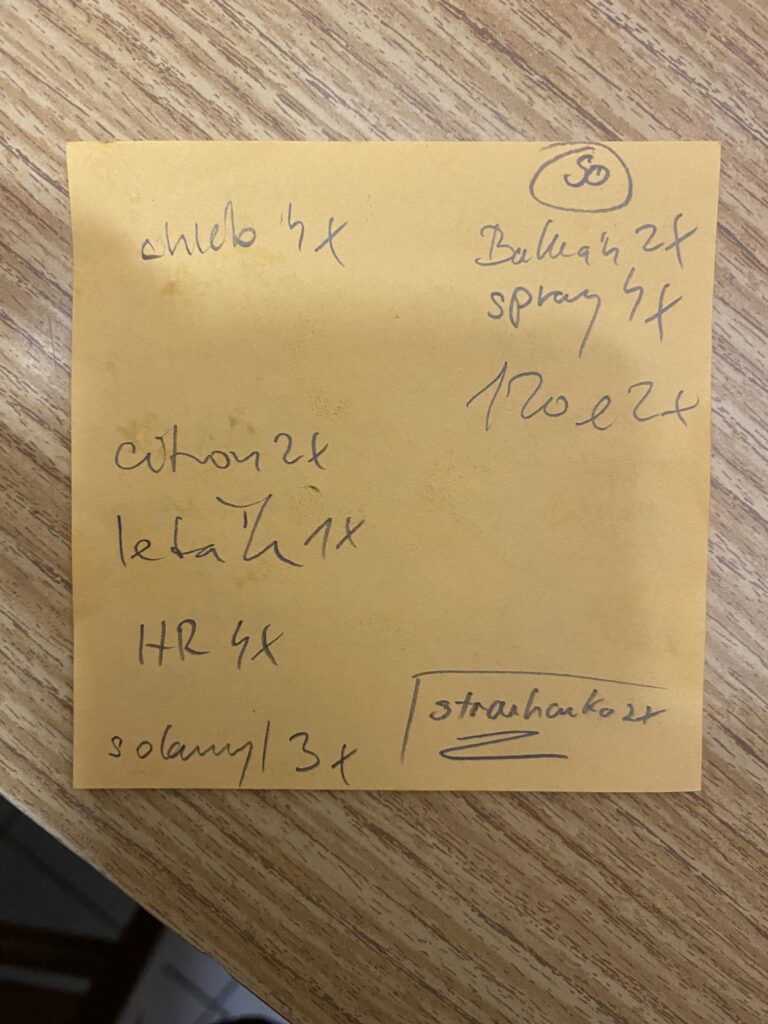 SO
chleb 4x
Balkán 2x
spray 4x
120 e 2x
citron 2x
leták 1x
HR 4x
solamyl 3x
strouhanka 2x